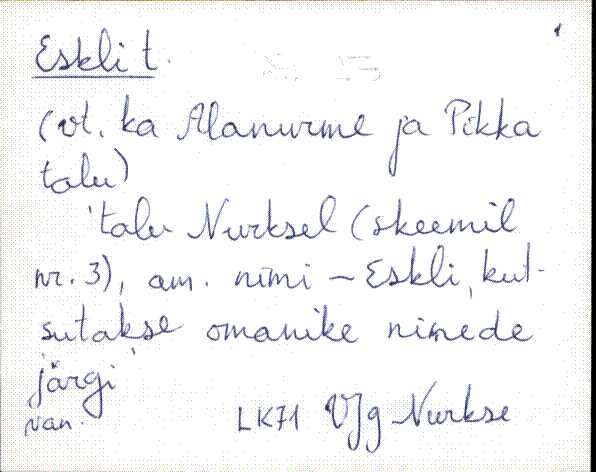 Eskli t.
(vt. ka Alanurme ja Pikka
talu)
'talu Nurksel (skeemil
nr. 3), am. nimi – Eskli, kut-
sutakse omanike nimede
järgi'
van.
LK71 VJg Nurkse